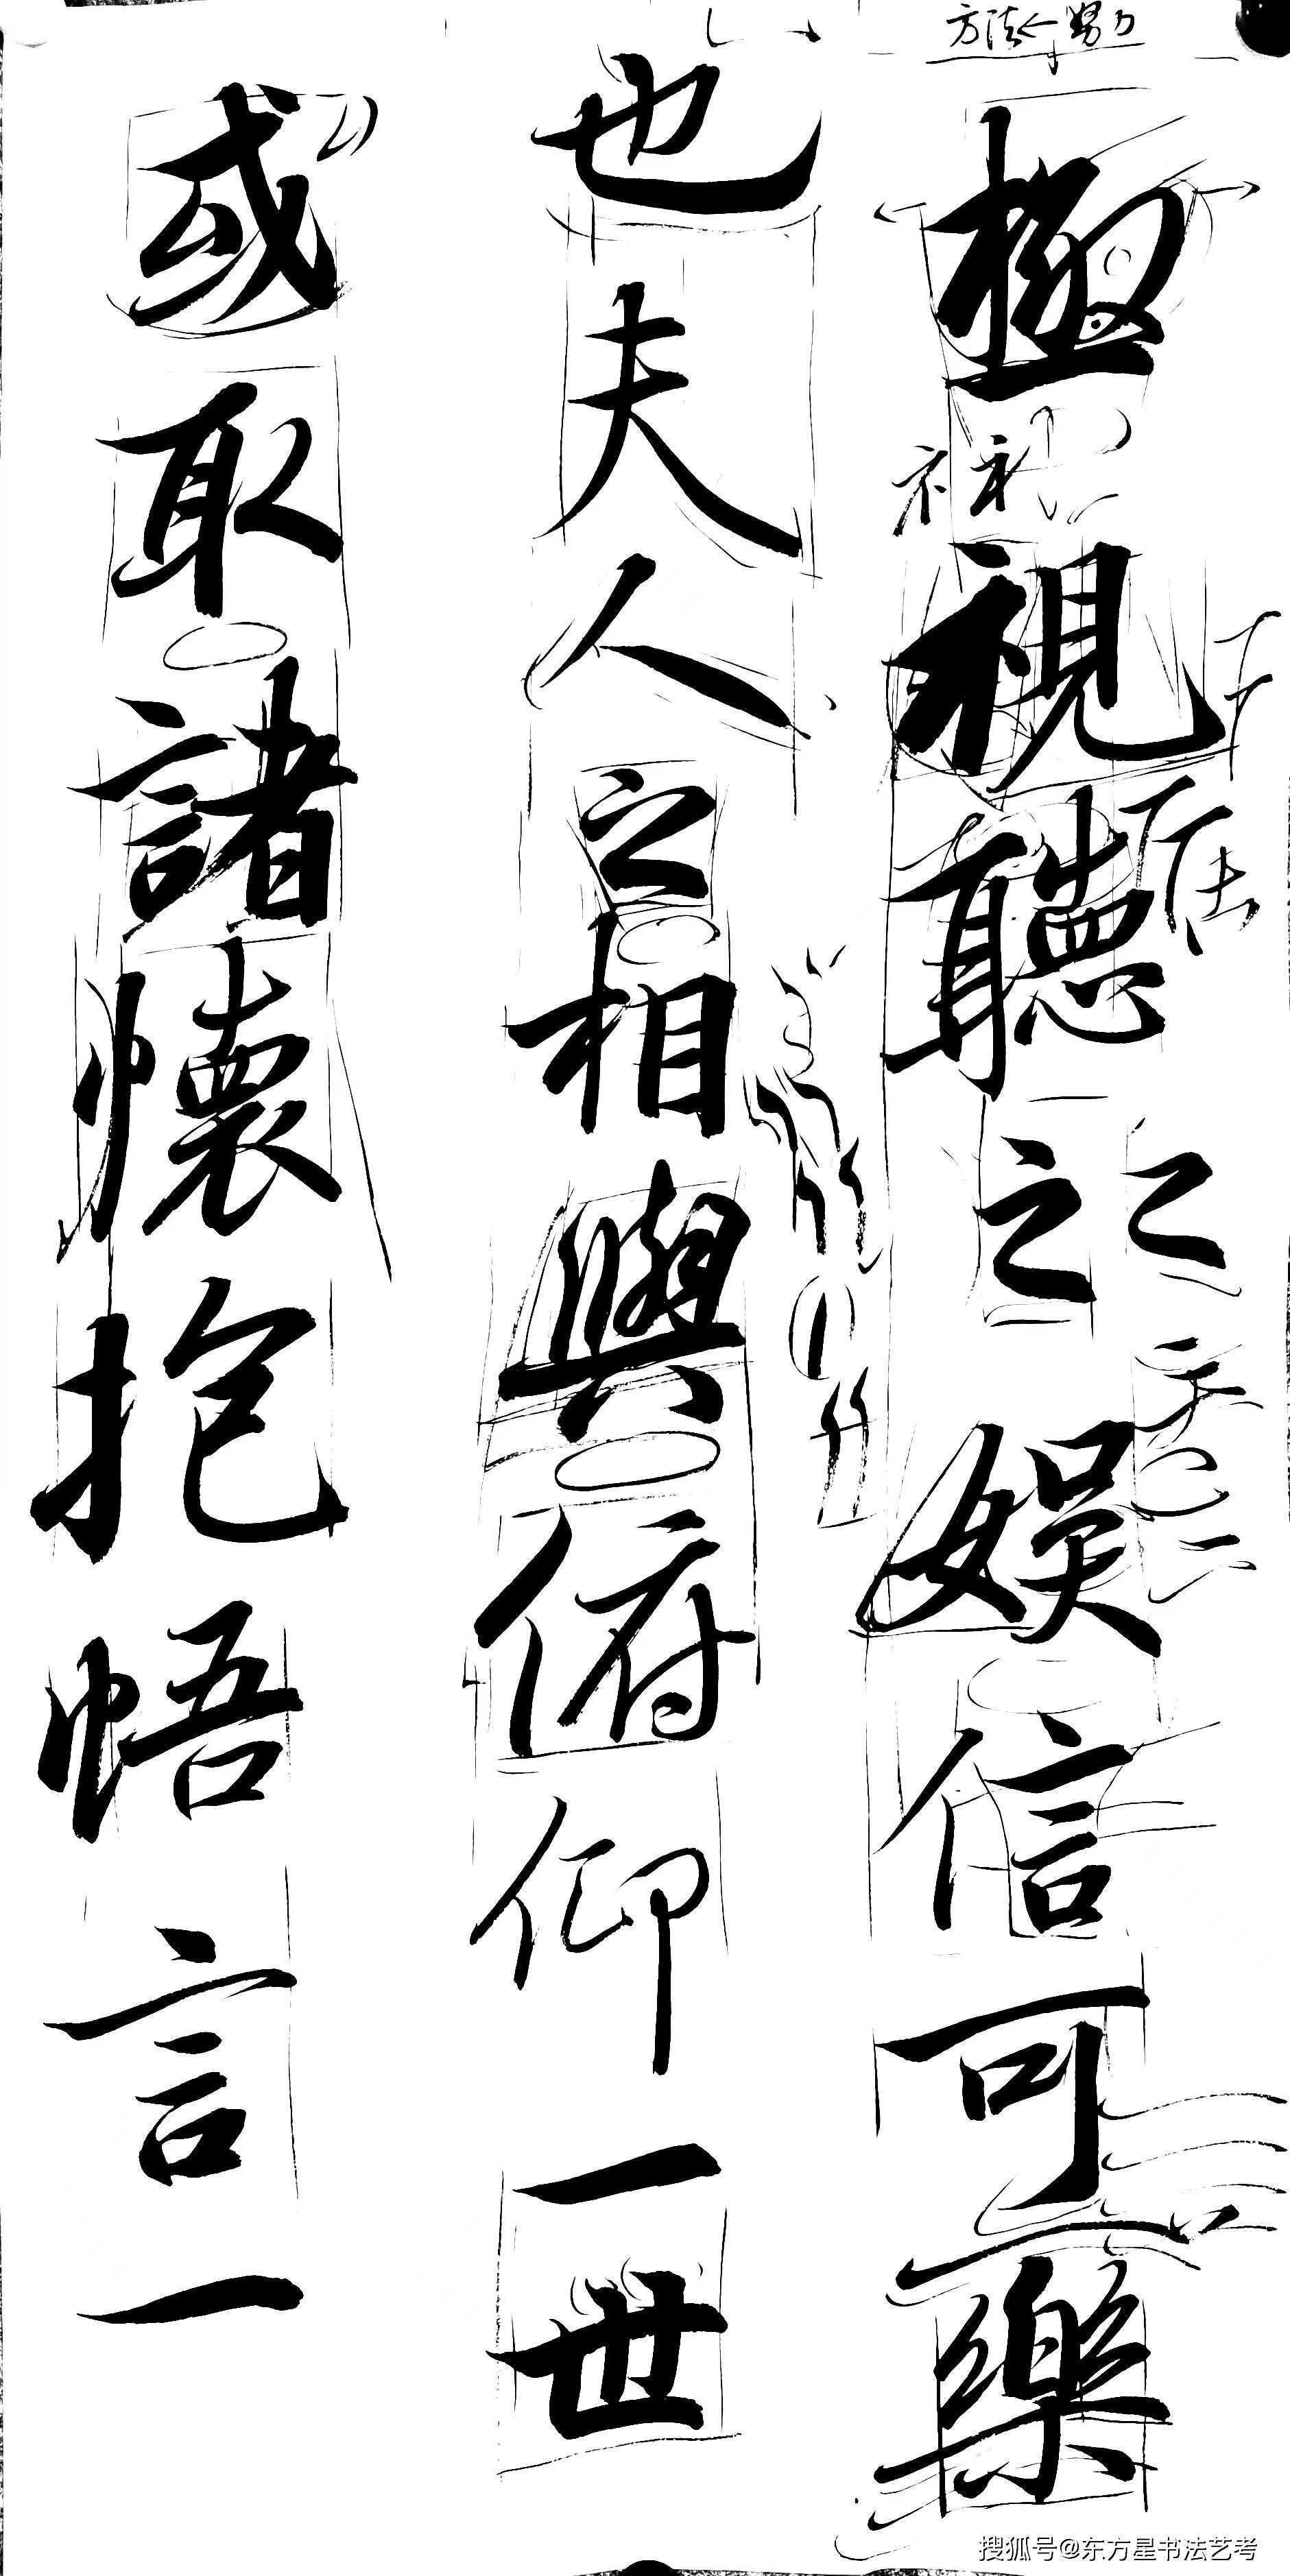 方法 努力
極視聽之娛信可樂
也夫人之相與俯仰一世
或取諸懷抱悟言一
搜狐号@东方星书法艺考